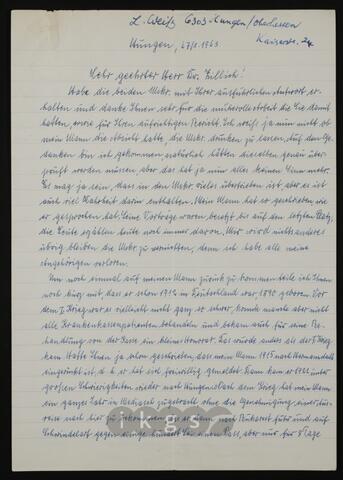 L. Weiß, 6303 Hungen/Oberhessen
Kaiserstr. 24
Hungen, 27/1.1963
Sehr geehrter Herr Dr. Zillich!
Habe die beiden Mskr. mit Ihrer ausführlichen Antwort er-
halten und danke Ihnen sehr für die mühevolle Arbeit die Sie damit
hatten, sowie für Ihren aufrichtigen Bericht. Ich weiß ja nun nicht ob
mein Mann die Absicht hatte, die Mskr. drucken zu lassen. Auf den Ge-
danken bin ich gekommen, natürlich hätten dieselben genau über-
prüft werden müssen, aber das hat ja nun alles keinen Sinn mehr.
Es mag ja sein, dass in den Mskr. vieles übertrieben ist, aber es ist
auch viel Wahrheit darin enthalten. Mein Mann hat so geschrieben wie
er gesprochen hat. Seine Vorträge waren besetzt bis auf den letzten Platz,
die Leute erzählen heute noch immer davon. Mir wird nichts anderes
übrig bleiben die Mskr. zu vernichten, denn ich habe alle meine
Angehörigen verloren.
Um noch einmal auf meinen Mann zurück zu kommen teile ich Ihnen
noch kurz mit, dass er schon 1914 in Deutschland war 1890 geboren. Vor
dem I. Krieg war es vielleicht nicht ganz so schwer, konnte wurde aber nicht
alle Krankenkassenpatienten behandeln und bekam auch für seine Be-
handlung von der Kasse ein kleines Honorar. Das wurde anders als der I. Krieg
kam. Hatte Ihnen ja schon geschrieben, dass mein Mann 1915 nach Hermannstadt
eingerückt ist, d.h. er hat sich freiwillig gemeldet. Dann kam er 1922 unter
großen Schwierigkeiten wieder nach Hungen. Nach dem Krieg hat mein Mann
ein ganzes Jahr in Mediasch zugebracht ohne die Genehmigung einer Aus-
reise nach hier zu bekommen
bis er dann nach Bukarest fuhr und auf
Schwindelart gegen einige hundert Lei einen Pass, aber nur für 8 Tage
ikgs